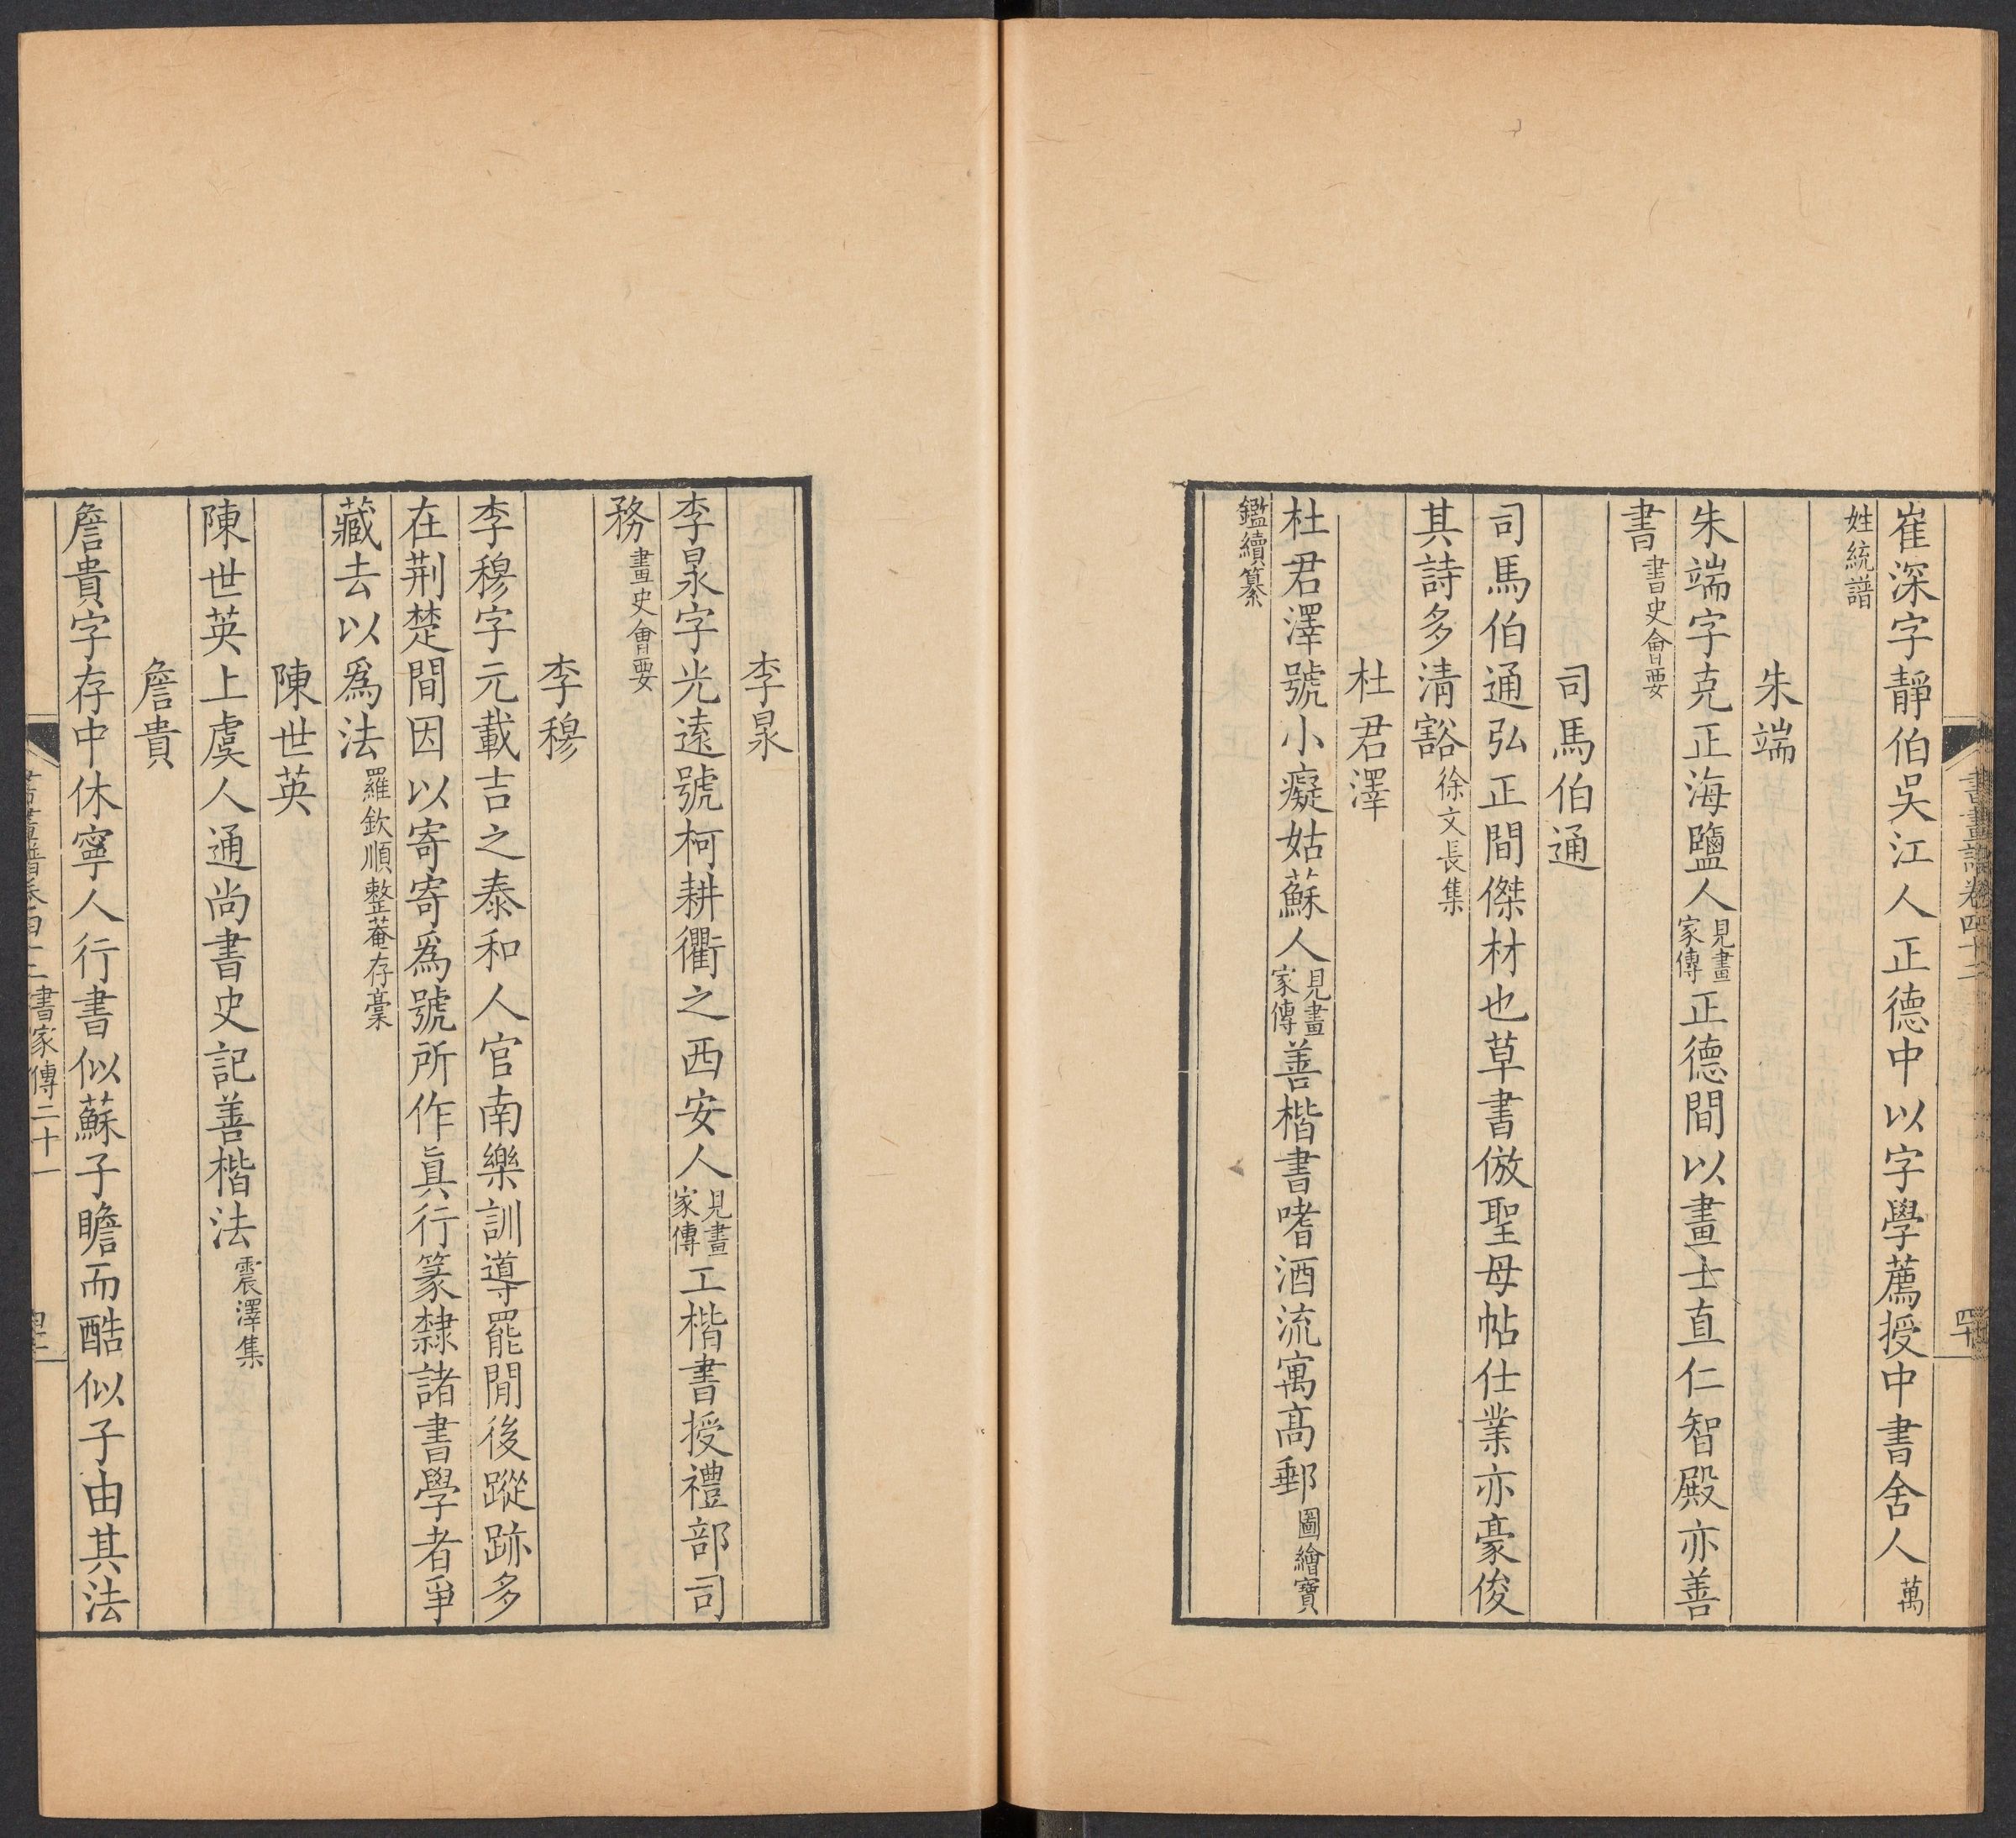 崔深字靜伯吳江人正德中以字學薦授中書舍人萬
姓統譜
朱端
朱端字克正海鹽人見畫家傳正德間以畫士直仁智殿亦善
書書史會要
司馬伯通
司馬伯通弘正間傑材也草書倣聖母帖仕業亦豪俊
其詩多清豁徐文長集
杜君澤
杜君澤號小癡姑蘇人見畫家傳善楷書嗜酒流寓高郵圖繪寶
鑑續纂
李杲
李杲字光遠號柯耕衢之西安人見畫家傳工楷書授禮部司
務畫史會要
李穆
李穆字元載吉之泰和人官南樂訓導罷閒後蹤跡多
在荆楚間因以寄寄爲號所作眞行篆隸諸書學者爭
藏去以爲法羅欽順整菴存稾
陳世英
陳世英上虞人通尚書史記善楷法震澤集
詹貴
詹貴字存中休寧人行書似蘇子瞻而酷似子由其法
書家傳二十一